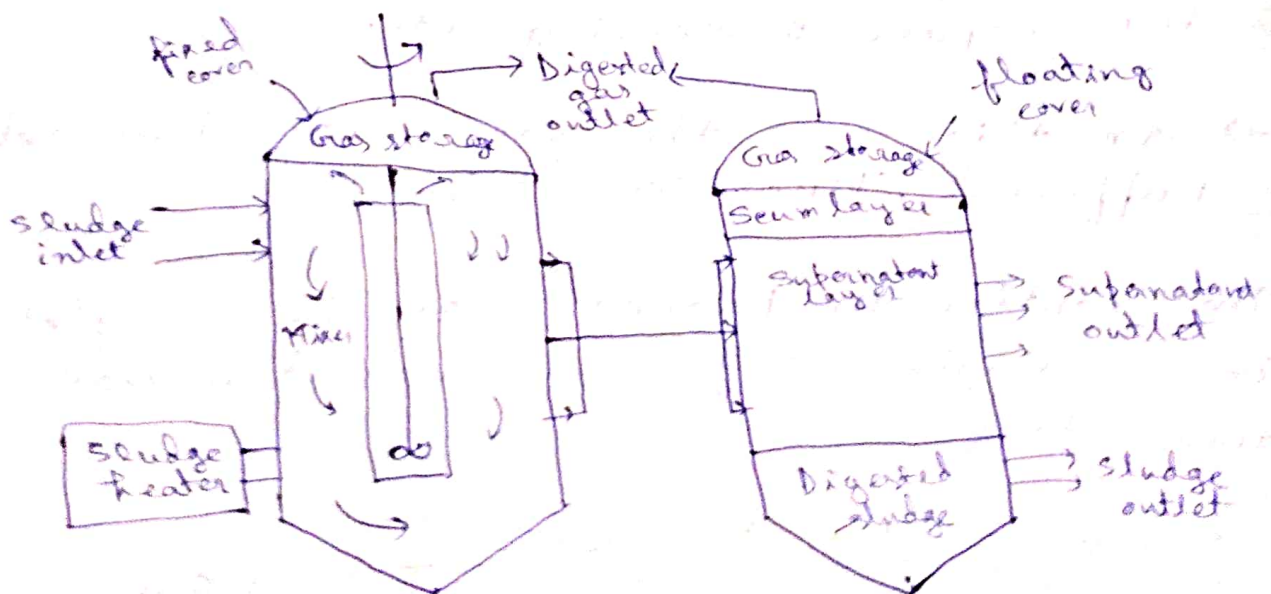 fixed
cover
Digested
gas
outlet
floating
cover
Gas storage
Gas storage
Scum layer
Sludge
inlet
Supernatant
layer
Supernatard
outlet
Mixer
Sludge
heater
Digested
sludge
Sludge
outlet